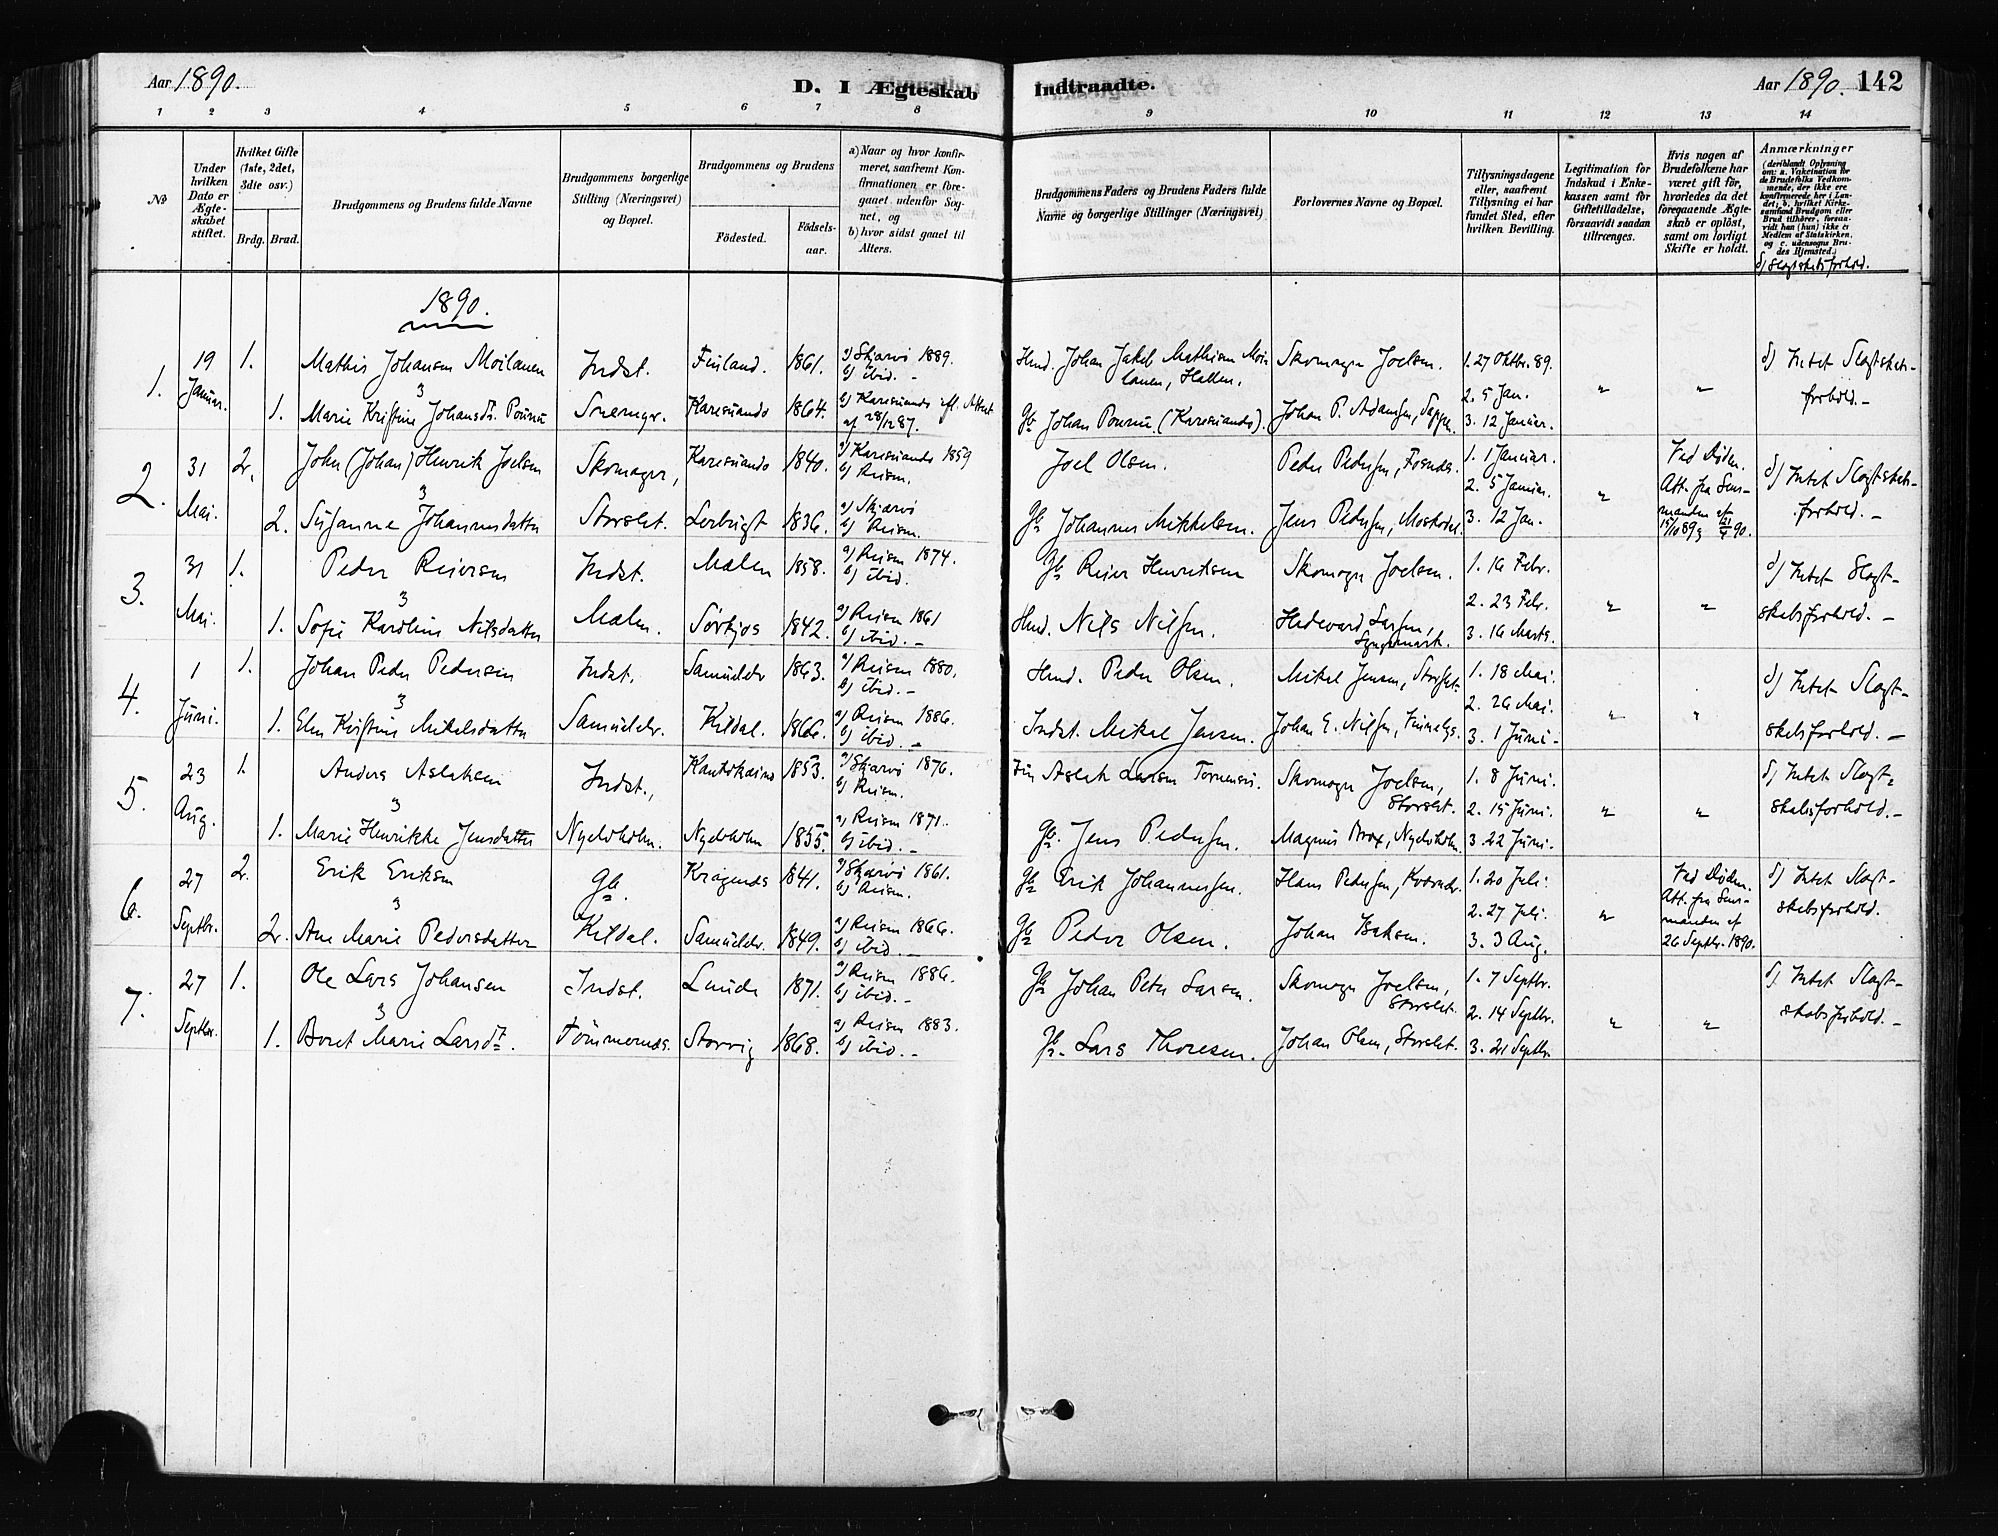 Aar 1890.
D. I Ægteskab Indtraadte.
Aar 1890. 142
1 2 3 4 5 6 7 8 9 10 11 12 13 14
№
Under hvilken Dato er Ægteskabet stiftet.
Hvilket Gifte (1ste, 2det, 3die osv.)
Brdg. Brud.
Brudgommens og Brudens fulde Navne
Brudgommens borgerlige Stilling (Næringsvei) og Bopæl.
Brudgommens og Brudens
Fødested.
Fødsels-aar.
a) Naar og hvor konfirmeret, saafremt Konfirmationen er foregaaet udenfor Sognet, og
b) hvor sidst gaaet til Alters.
Brudgommens Faders og Brudens Faders fulde Navne og borgerlige Stillinger (Næringsvei)
Forlovernes Navne og Bopæl.
Tillysningsdagene eller, saafremt Tillysning ei har fundet Sted, efter hvilken Bevilling.
Legitimation for Indskud i Enkekassen samt for Giftetilladelse, forsaavidt saadan tiltrænges.
Hvis nogen af Brudefolkene har været gift før, hvorledes da det foregaaende Ægteskab er opløst, samt om lovligt Skifte er holdt.
Anmærkninger
(deriblandt Oplysning om: a. Vakcination for de Brudefolks Vedkommende, der ikke ere konfirmerede her i Landet; b. hvilket Kirkesamfund Brudgom eller Brud tilhører, forsaavidt han (hun) ikke er Medlem af Statskirken, og c. udensogns Brudes Hjemsted.)
d) Slagtskabsforhold.
1890.
1. 19 Januar. 1. Mathis Johansen Moilanen Indst. Finland. 1861. a) Skjærvø 1889. b) ibid. - Johan Jakob Mathisen Moilanen, Hallen. Skomager Joelsen. 1. 27 Oktbr. 89. 2. 5 Jan. " " d) Intet Slagtskabsforhold. -
1. Marie Kristine Johansdt. Karesuando 1864. b) Karesuando efl. Attest af 28/12 87. Johan (Karesuando). Johan P. Adamsen, 3. 12 Januar.
2. 31 Mai. 2. John (Johan) Henrik Joelsen Skomager, Karesuando 1840. a) Karesuando 1859 b) Reisen. Joel Olsen. Peder Pedersen, 1. 1 Januar. 2. 5 Januar. " Ved Døden. Att. fra Lensmanden af 15/10 89 d) Intet Slagtskabsforhold. -
2. Susanne Johannesdatter Storslet. Lerbugt 1836. a) Skjærvø b) Reisen. Gb. Johannes Mikkelsen. Jens Pedersen, 3. 12 Jan.
3. 31 Mai. 1. Peder Reiersen Indst. Mælen 1858. a) Reisen 1874. b) ibid. Gb. Reier Henriksen Skomager Joelsen. 1. 16 Febr. 2. 23 Febr. " " d) Intet Slagtskabsforhold. -
1. Sofie Karoline Nilsdatter Mælen. Sørkjos 1842. a) Reisen 1861 b) ibid. - Nils Nilsen. Hedevard Larsen, 3. 16 Marts.
4. 1 Juni. 1. Johan Peder Pedersen Indst. Samuelelv 1863. a) Reisen 1880. b) ibid. - Peder Olsen. Mikel Jensen, Storslet. 1. 18 Mai. 2. 26 Mai. " " d) Intet Slagtskabsforhold. -
1. Elen Kristine Mikelsdatter Samuelelv. Kildal. 1866. a) Reisen 1886. b) ibid. - Indst. Mikel Jensen. Johan E. Nilsen, 3. 1 Juni -
5. 23 Aug. 1. Anders Aslaksen Indst., Kautokaino 1853. a) Skjærvø 1876. b) Reisen. Aslak Larsen Skomager Joelsen, Storslet. 1. 8 Juni. 2. 15 Juni. " " d) Intet Slagtskabsforhold. -
1. Marie Henrikke Jensdatter Nyelvholm. Nyelvholm 1855. a) Reisen 1871. b) ibid. - Gb. Jens Pedersen. Magnus Brox, Nyelvholm. 3. 22 Juni.
6. 27 Septbr. 2. Erik Eriksen Gb. Krågenes 1841. a) Skjærvø 1861. b) Reisen. Gb. Erik Johannesen. Hans Pedersen, 1. 20 Juli. 2. 27 Juli. " Ved Døden. Att. fra Lensmanden af 26 Septbr. 1890. d) Intet Slagtskabsforhold.
2. Ane Marie Pedersdatter Kildal. Samuelelv. 1849. a) Reisen 1866. b) ibid. - Gb. Peder Olsen. Johan Isaksen. 3. 3 Aug.
7. 27 Septbr. 1. Ole Lars Johansen Indst. Lunde 1871. a) Reisen 1886. b) ibid. - Gb. Johan Peter Larsen. Skomager Joelsen, Storslet. 1. 7 Septbr. 2. 14 Septbr. " " d) Intet Slagtskabsforhold. -
1. Beret Marie Larsdt. Tømmernes. Storvig 1868. a) Reisen 1883. b) ibid. - Gb. Lars Thoresen. Johan Olsen, Storslet. 3. 21 Septbr.